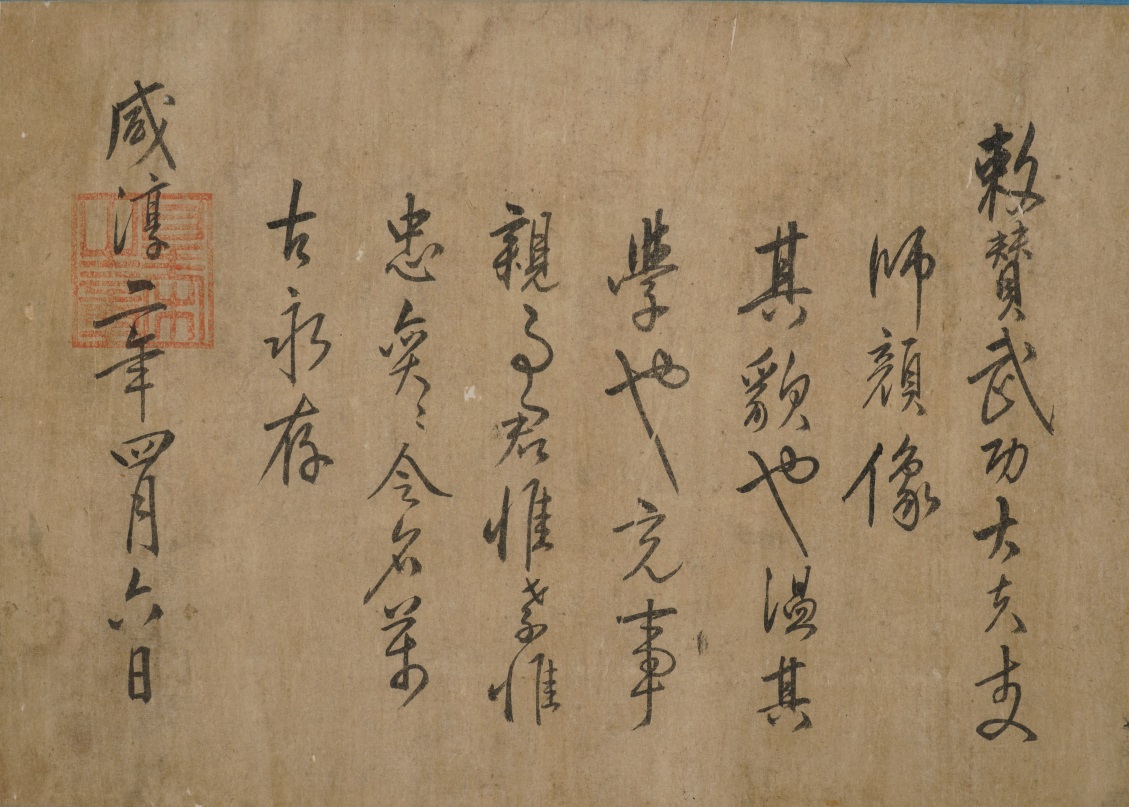 敕贊武功大夫
師顏像
其貌也溫其
學也充事
親事君惟孝惟
忠奕奕令名萬
古永存
咸淳二年四月六日